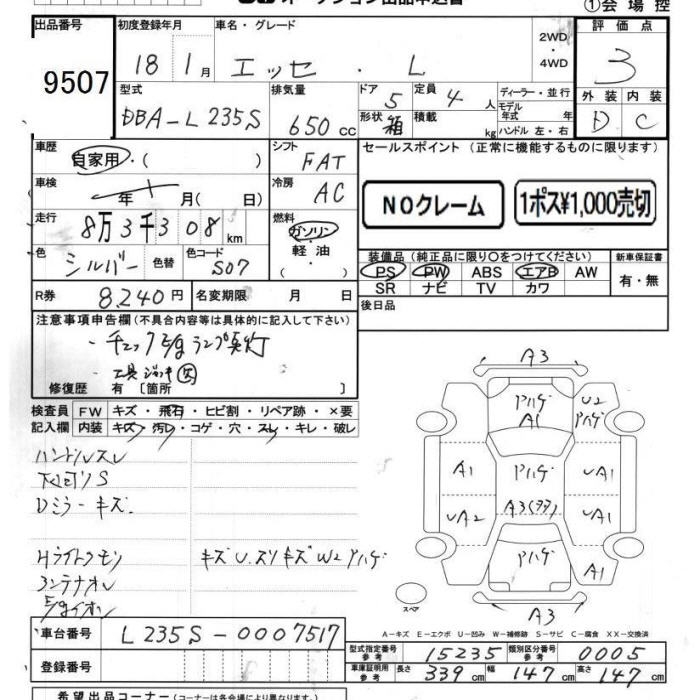 オークション出品申込書
①会場控
出品番号
9507
初度登録年月
18 1月
車名・グレード
エッセ・L
2WD
・
4WD
評価点
3
外装 内装
D C
型式
DBA-L235S
排気量
650cc
ドア
5
形状
箱
定員
4人
積載
kg
ディーラー・並行
モデル
年式 年
ハンドル 左・右
車歴
自家用・( )
シフト
FAT
セールスポイント (正常に機能するものに限ります)
NOクレーム
1ポス¥1,000売切
車検
年 月( 日)
冷房
AC
走行
8万3千308km
燃料
ガソリン
・
軽油
・
( )
色
シルバー
色替
色コード
S07
装備品 (純正品に限り○をつけてください)
PS PW ABS エアB AW
SR ナビ TV カワ
新車保証書
有・無
R券 8,240円
名変期限 月 日
後日品
注意事項申告欄(不具合内容等は具体的に記入して下さい)
・チェックE/gランプ点灯
工具 ジャッキ 欠
修復歴 有〔箇所 〕
検査員
記入欄
FW キズ・飛石・ヒビ割・リペア跡・×要
内装 キズ・汚レ・コゲ・穴・スレ・キレ・破レ
ハンドルスレ
下回りS
Dミラーキズ
Hライトクモリ
キズU.スリキズW2アハゲ
コンテナオレ
E/gイオン
A3
アハゲ
A1
U2
アハゲ
A1
アハゲ
UA1
UA2
A3(タタ)
UA1
アハゲ
A1
A3
スペア
A-キズ E-エクボ U-凹み W-補修跡 S-サビ C-腐食 XX-交換済
車台番号 L235S-0007517
型式指定番号
参考
15235
類別区分番号
参考
0005
登録番号
車庫証明用
参考
長さ 339cm 幅 147cm 高さ 147cm
希望出品コーナー (コーナーは各会場により異なります)